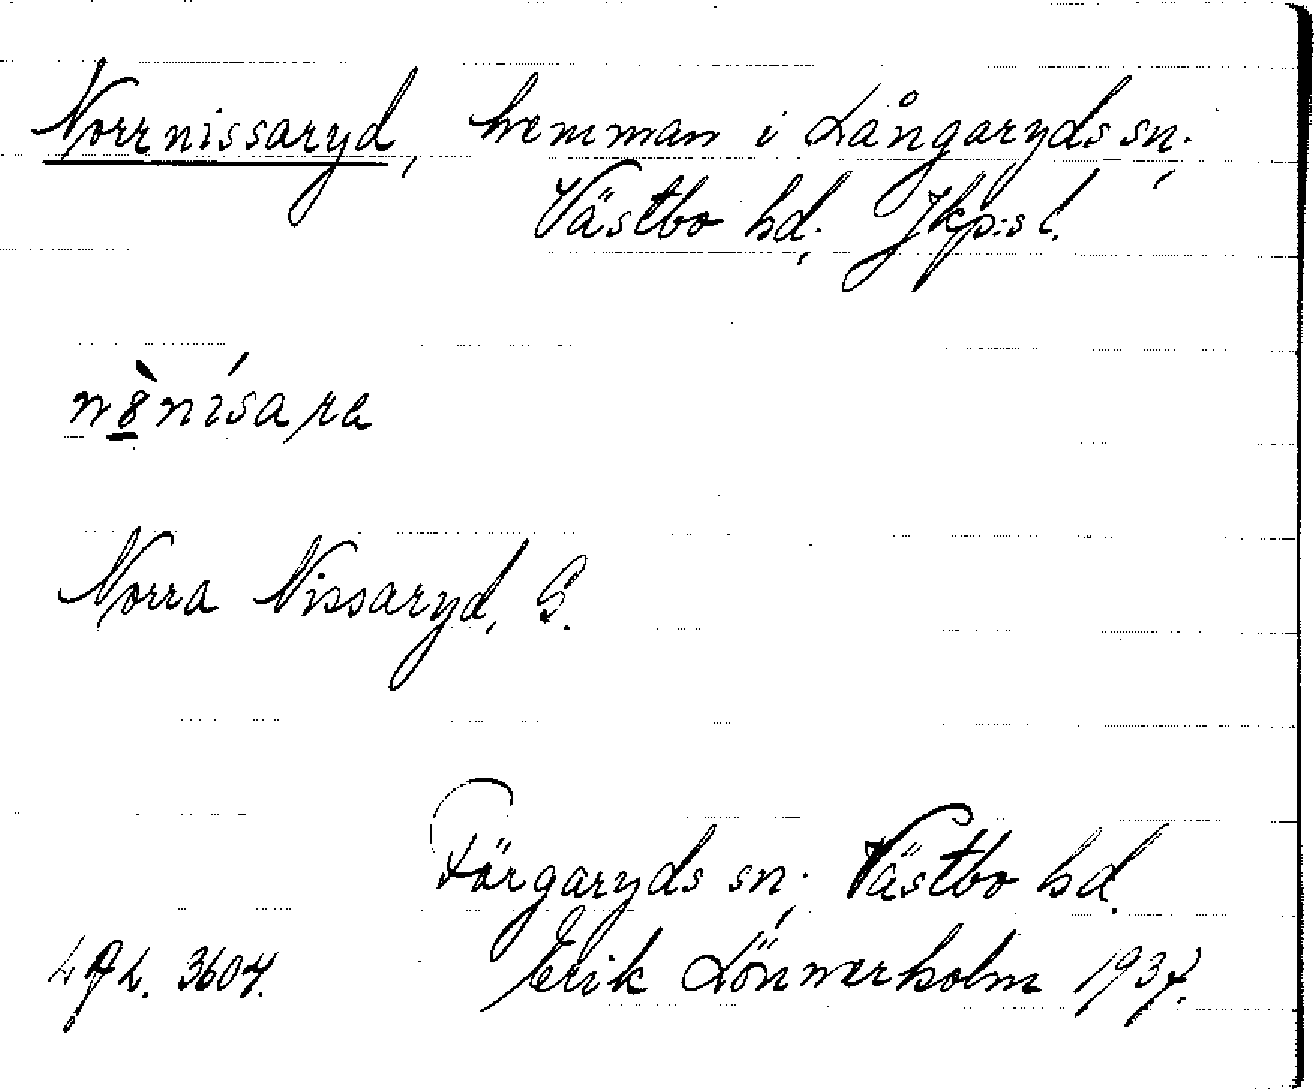 Norrnissaryd, hemman i Långaryds sn.,
Västbo hd., Jkp:s l.
n8̀nísara
Norra Nissaryd, G.
Färgaryds sn., Västbo hd.
3604. Erik Lönnerholm 1937.